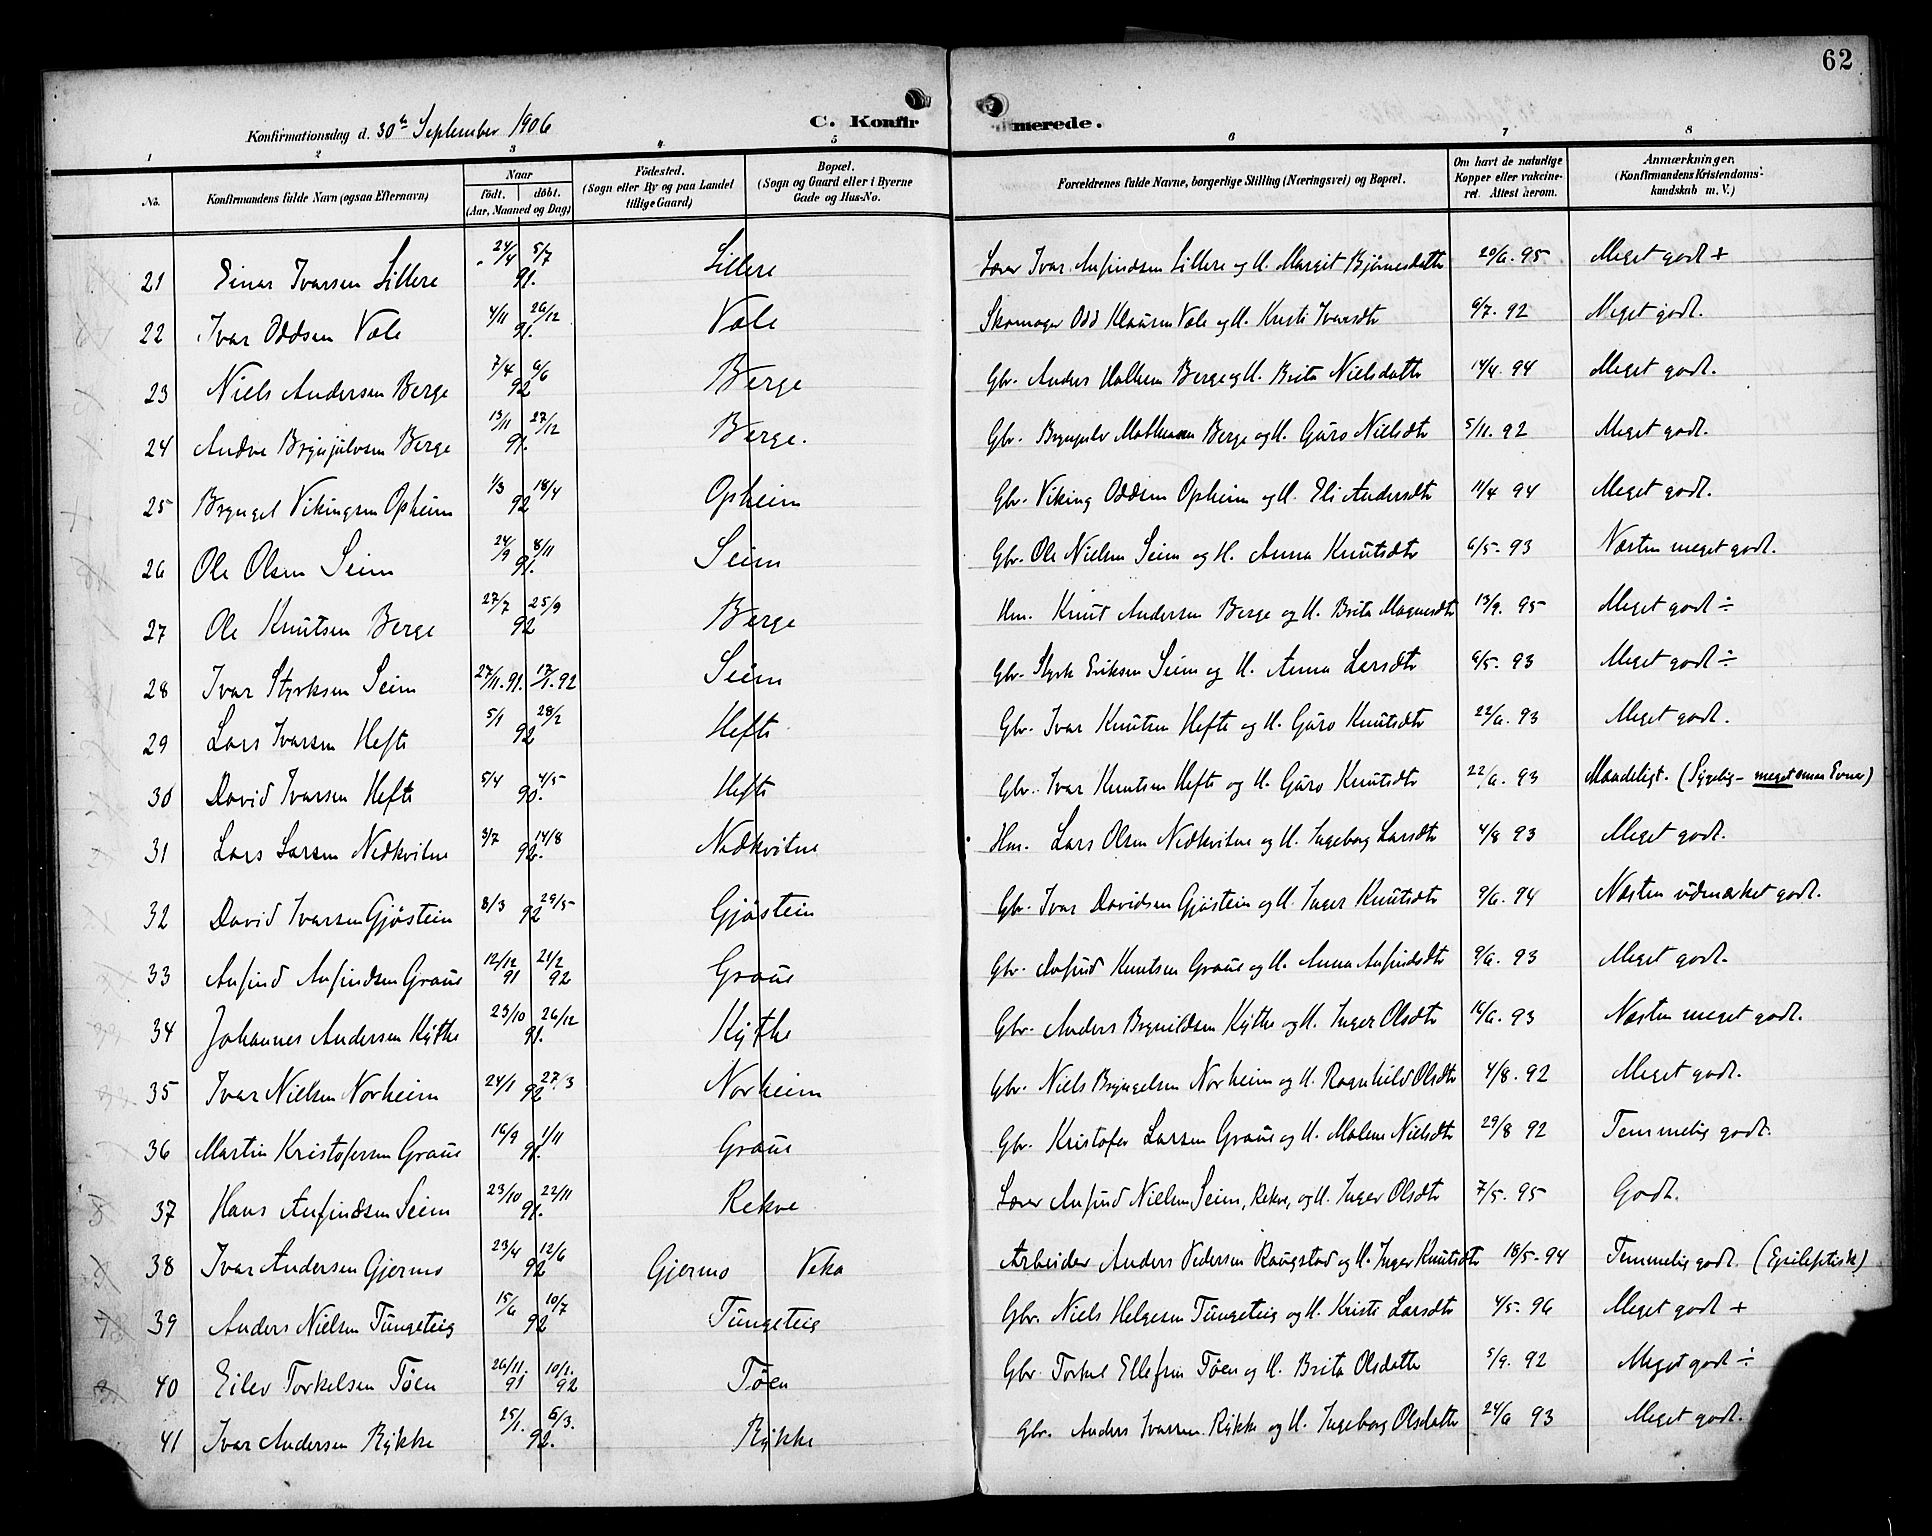 62
Konfirmationsdag d. 30te September 1906 C. Konfirmerede.
1 2 3 4 5 6 7 8
No. Konfirmandens fulde Navn (ogsaa Efternavn) Naar født. døbt. (Aar, Maaned og Dag) Fødested. (Sogn eller By og paa Landet tillige Gaard) Bopæl. (Sogn og Gaard eller i Byerne Gade og Hus-No. Forældrenes fulde Navne, borgerlige Stilling (Næringsvei) og Bopæl. Om havt de naturlige Kopper eller vakcineret. Attest herom. Anmærkninger. (Konfirmandens Kristendomskundskab m. V.)
21 Einar Ivarsen Lillere 24/4 5/7 91. Lillere Lærer Ivar Anfindsen Lillere og H. Margit Bjørnesdatter 20/6. 95 Meget godt +
22 Ivar Oddsen Væle 4/11 26/12 91. Væle Skomager Odd Klausen Væle og H. Kristi Ivarsdtr 6/7. 92 Meget godt.
23 Niels Andersen Berge 7/4 6/6 92 Berge Gbr. Anders Berge og H. Brita Nielsdatter 14/4. 94 Meget godt.
24 Andve Brynjulvsen Berge 13/11 27/12 91. Berge. Gbr. Berge og H. Gûro Nielsdtr 5/11. 92 Meget godt.
25 Bryngel Vikingsen Opheim 1/3 18/4 92 Opheim Gbr. Viking Oddsen Opheim og H. Eli Andersdtr 11/4 94 Meget godt.
26 Ole Olsen Seim 24/9 8/11 91. Seim Gbr. Ole Nielsen Seim og H. Anna Knutsdtr 6/5. 93 Næsten meget godt.
27 Ole Knutsen Berge 27/7 25/9 92 Berge Hm. Knut Andersen Berge og H. Brita Magnesdtr 13/9. 95 Meget godt ÷
28 Ivar Styrksen Seim 27/11. 91. 17/1. 92 Seim Gbr. Styrk Eriksen Seim og H. Anna Larsdtr 6/5. 93 Meget godt ÷
29 Lars Ivarsen Hefte 5/1 28/2 92 Hefte Gbr. Ivar Knutsen Hefte og H. Gûro Knûtsdtr 22/6. 93 Meget godt.
30 David Ivarsen Hefte 5/4 4/5 90. Hefte Gbr. Ivar Knutsen Hefte og H. Gûro Knûtsdtr 22/6. 93 Maadeligt. (Sygelig - meget smaa Evner)
31 Lars Larsen Nedkvitne 3/7 14/8 92. Nedkvitne Hm. Lars Olsen Nedkvitne og H. Ingeborg Larsdtr 4/8 93 Meget godt.
32 David Ivarsen Gjøstein 8/3 29/5 92 Gjøstein Gbr. Ivar Davidsen Gjøstein og H. Inger Knûtsdtr 9/6. 94 Næsten udmærket godt.
33 Anfind Anfindsen Graue 12/12 91 21/2 92 Graue Gbr. Anfind Knutsen Graue og H. Anna Anfindsdtr 9/6. 93 Meget godt.
34 Johannes Andersen Kythe 23/10 26/12 91. Kythe Gbr. Anders Brynildsen Kythe og H. Inger Olsdtr 16/6. 93 Næsten meget godt.
35 Ivar Nielsen Norheim 24/1 27/3 92 Norheim Gbr. Niels Bryngelsen Norheim og H. Ragnhild Olsdtr 4/8. 92 Meget godt.
36 Martin Kristofersen Graue 19/9 1/11 91. Graue Gbr. Kristofer Larsen Graue og H. Malene Nielsdtr 29/8 92 Temmelig godt.
37 Hans Anfindsen Seim 23/10 22/11 91. Rekve Lærer Anfind Nielsen Seim, Rekve, og H. Inger Olsdtr 7/5. 95 Godt.
38 Ivar Andersen Gjermo 23/4 12/6 92 Gjermo Veka Arbeider Anders Pedersen Raugstad og H. Inger Knûtsdtr 18/5-94 Temmelig godt. (Epileptisk)
39 Anders Nielsen Tûngeteig 15/6 10/7 92 Tûngeteig Gbr. Niels Helgesen Tûngeteig og H. Kristi Larsdtr 4/5. 96 Meget godt +
40 Eilev Torkelsen Tøen 26/11. 91 10/1. 92 Tøen Gbr. Torkel Ellefsen Tøen og H. Brita Olsdatter 5/9. 92 Meget godt ÷
41 Ivar Andersen Rykke 25/1. 6/3. 92. Rykke Gbr. Anders Ivarsen Rykke og H. Ingeborg Olsdatter 24/6 93 Meget godt.